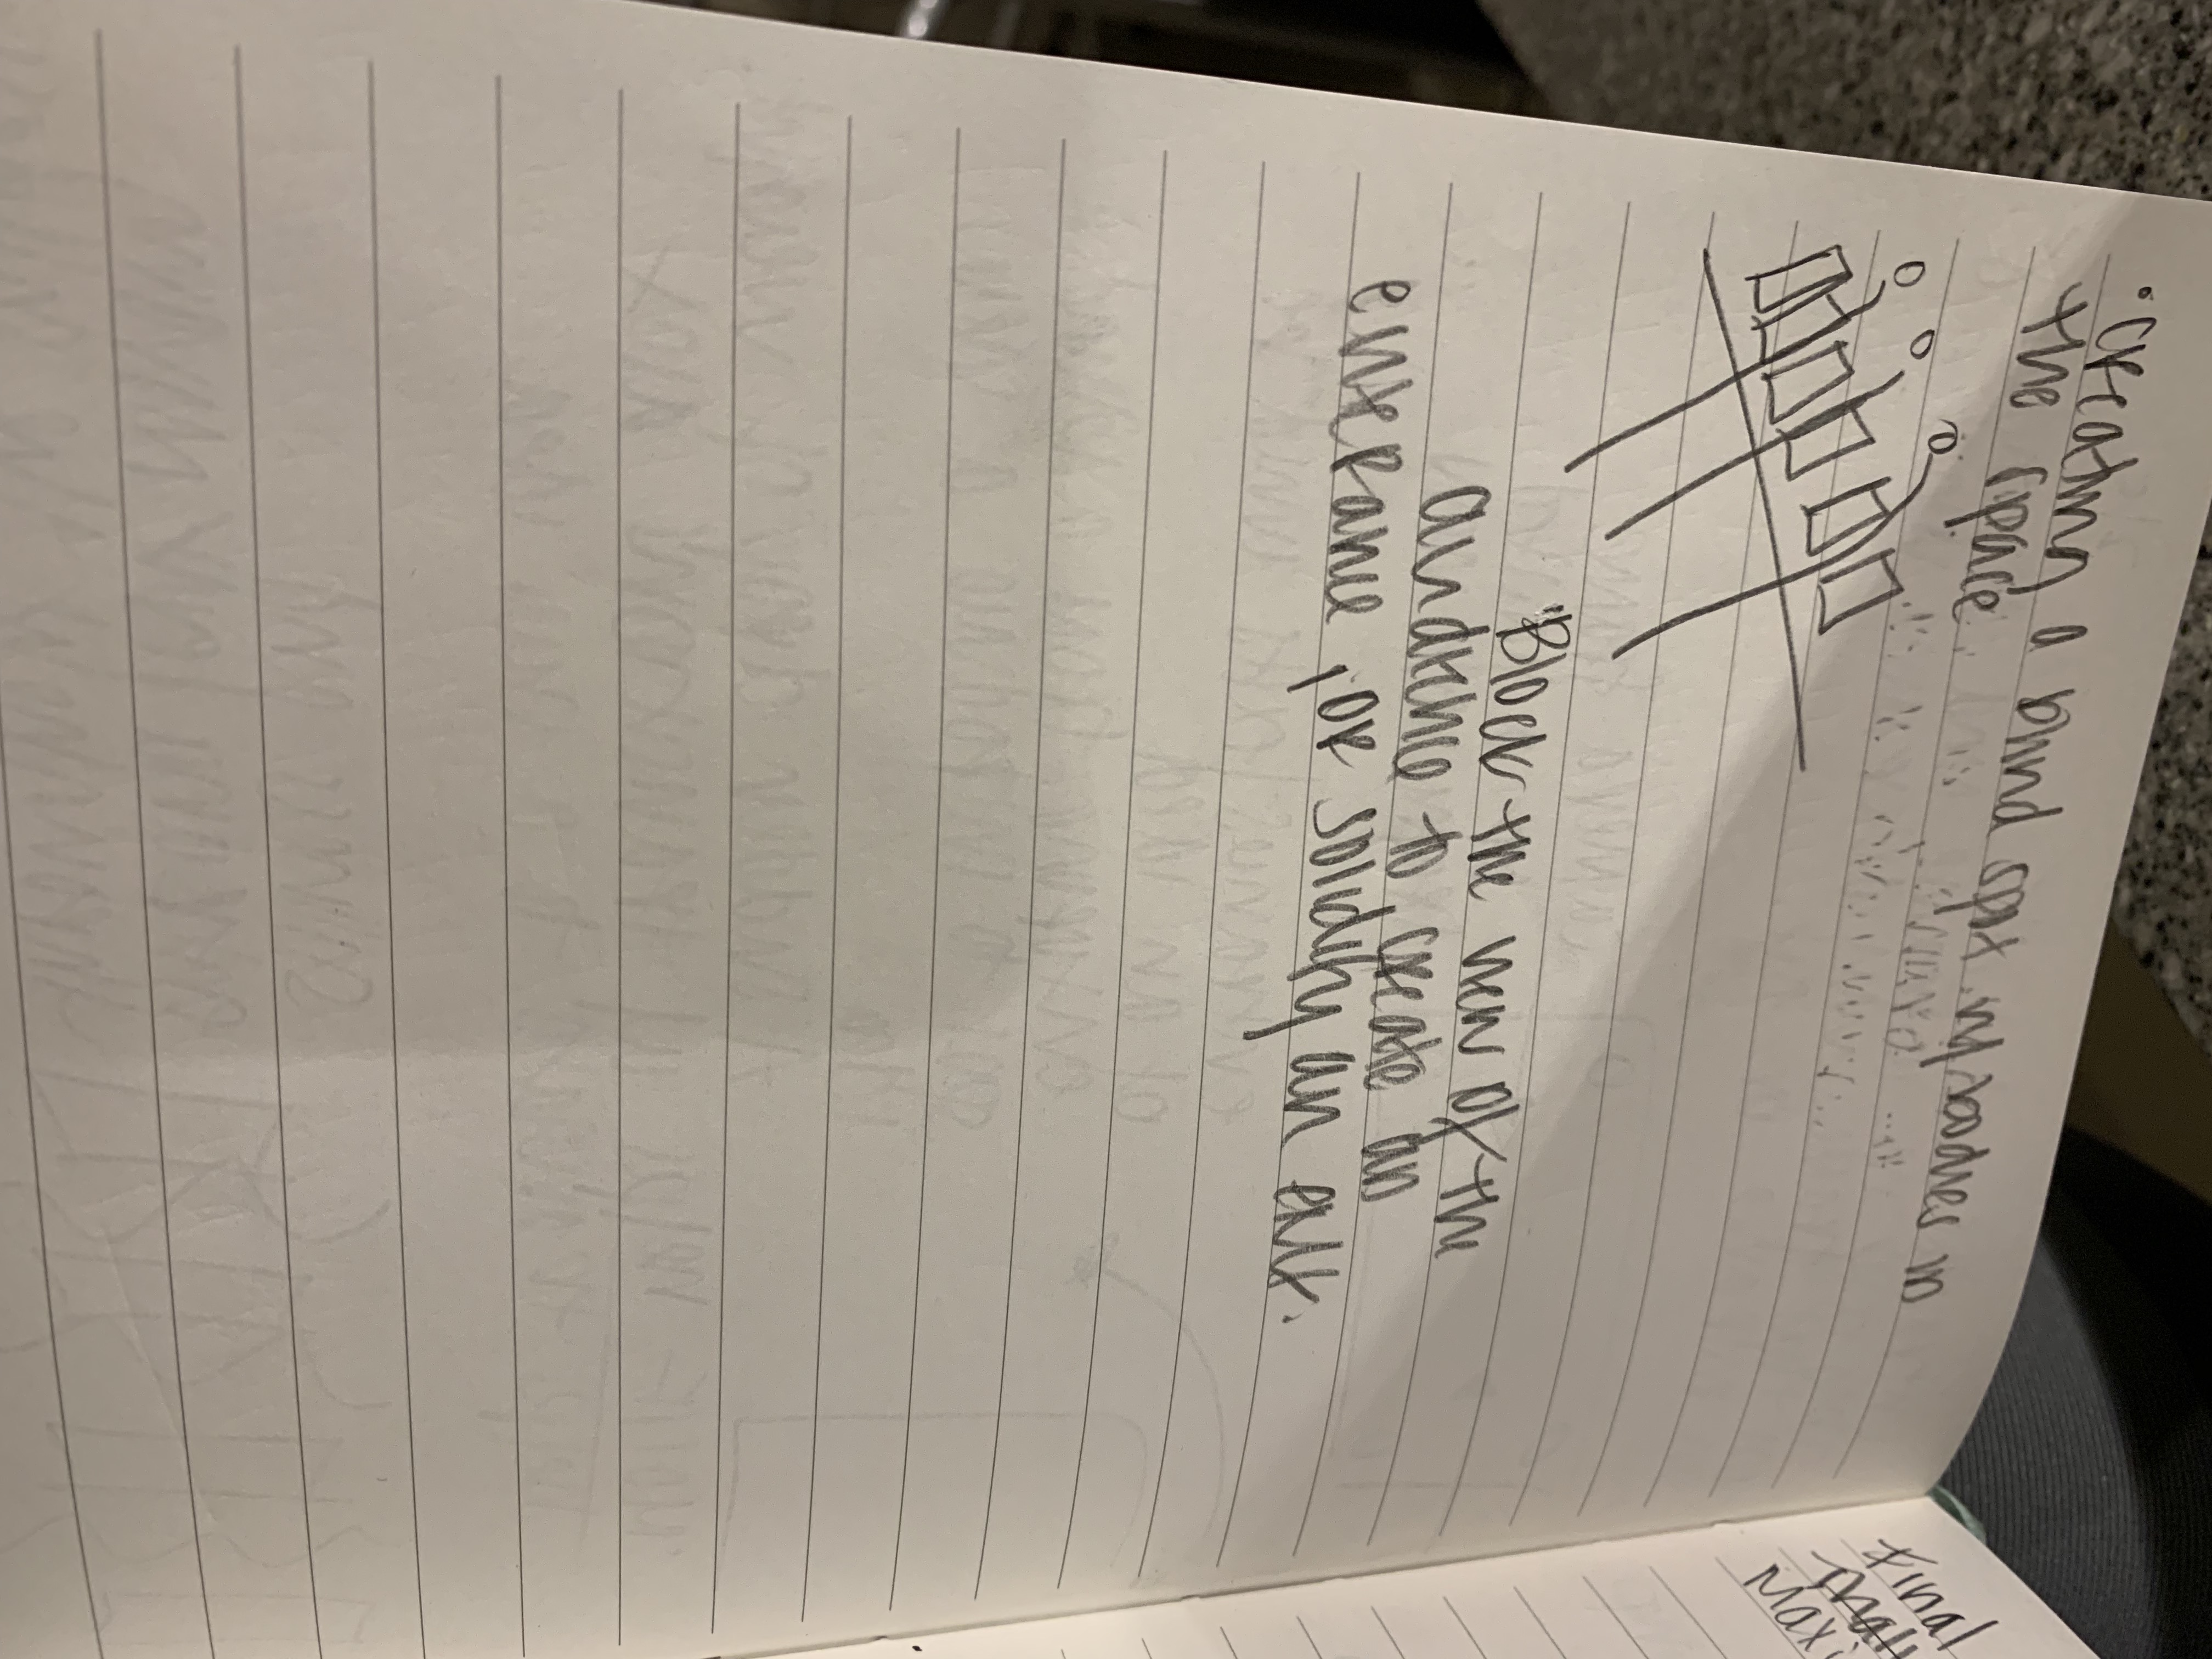 • Creating a blind spot w/ bodies in
the space
"Block the view of the
audience to create an
enterance for solidify an exit.
Final
Maxi